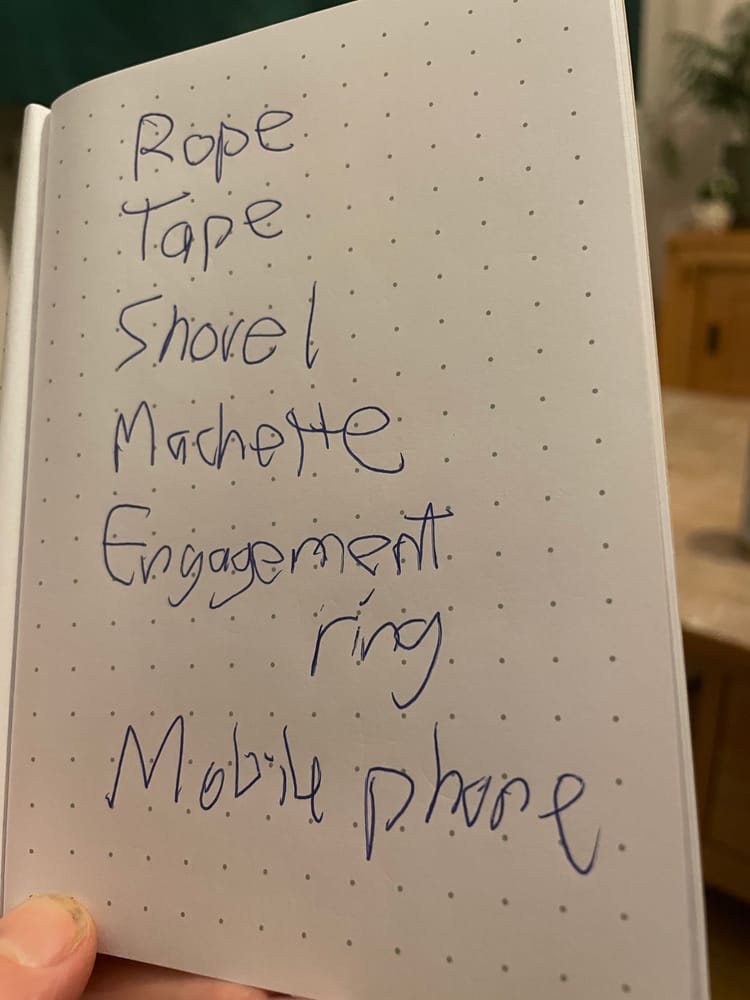 Rope
Tape
Shovel
Machette
Engagement
ring
Mobile phone